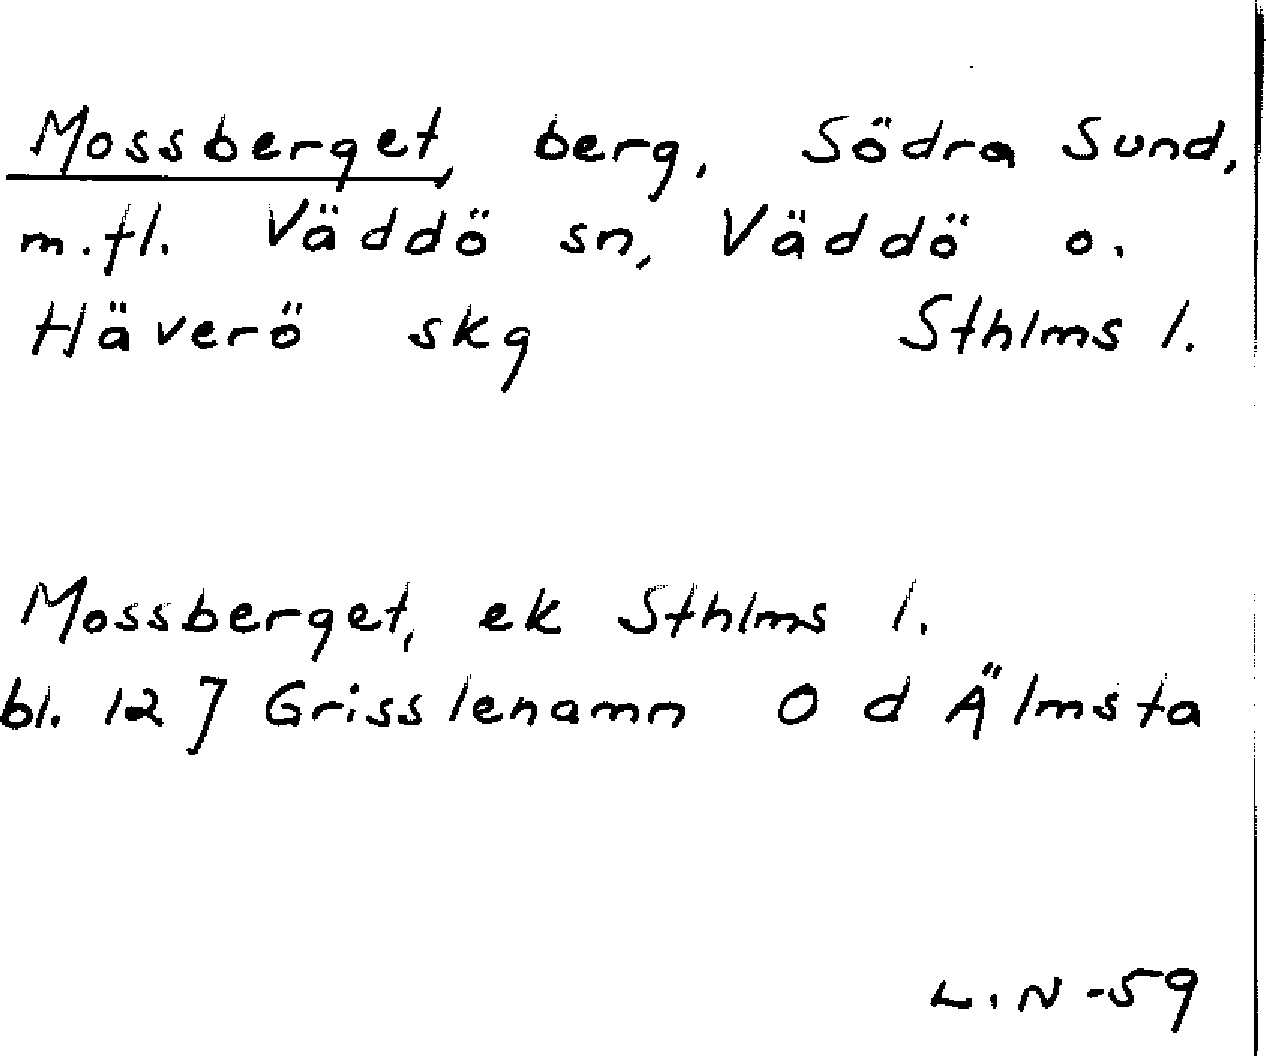 Mossberget, berg, Södra Sund,
m.fl. Väddö sn, Väddö o.
Häverö skg Sthlms l.
Mossberget, ek Sthlms l.
bl. 12 J Grisslehamn O d Älmsta
L.N -59